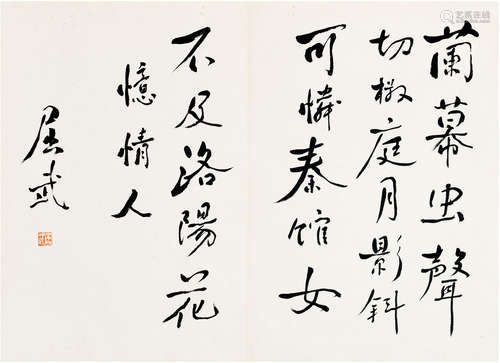 蘭幕虫聲
切椒庭月影斜
可憐秦館女
不及洛陽花
憶情人
屈武